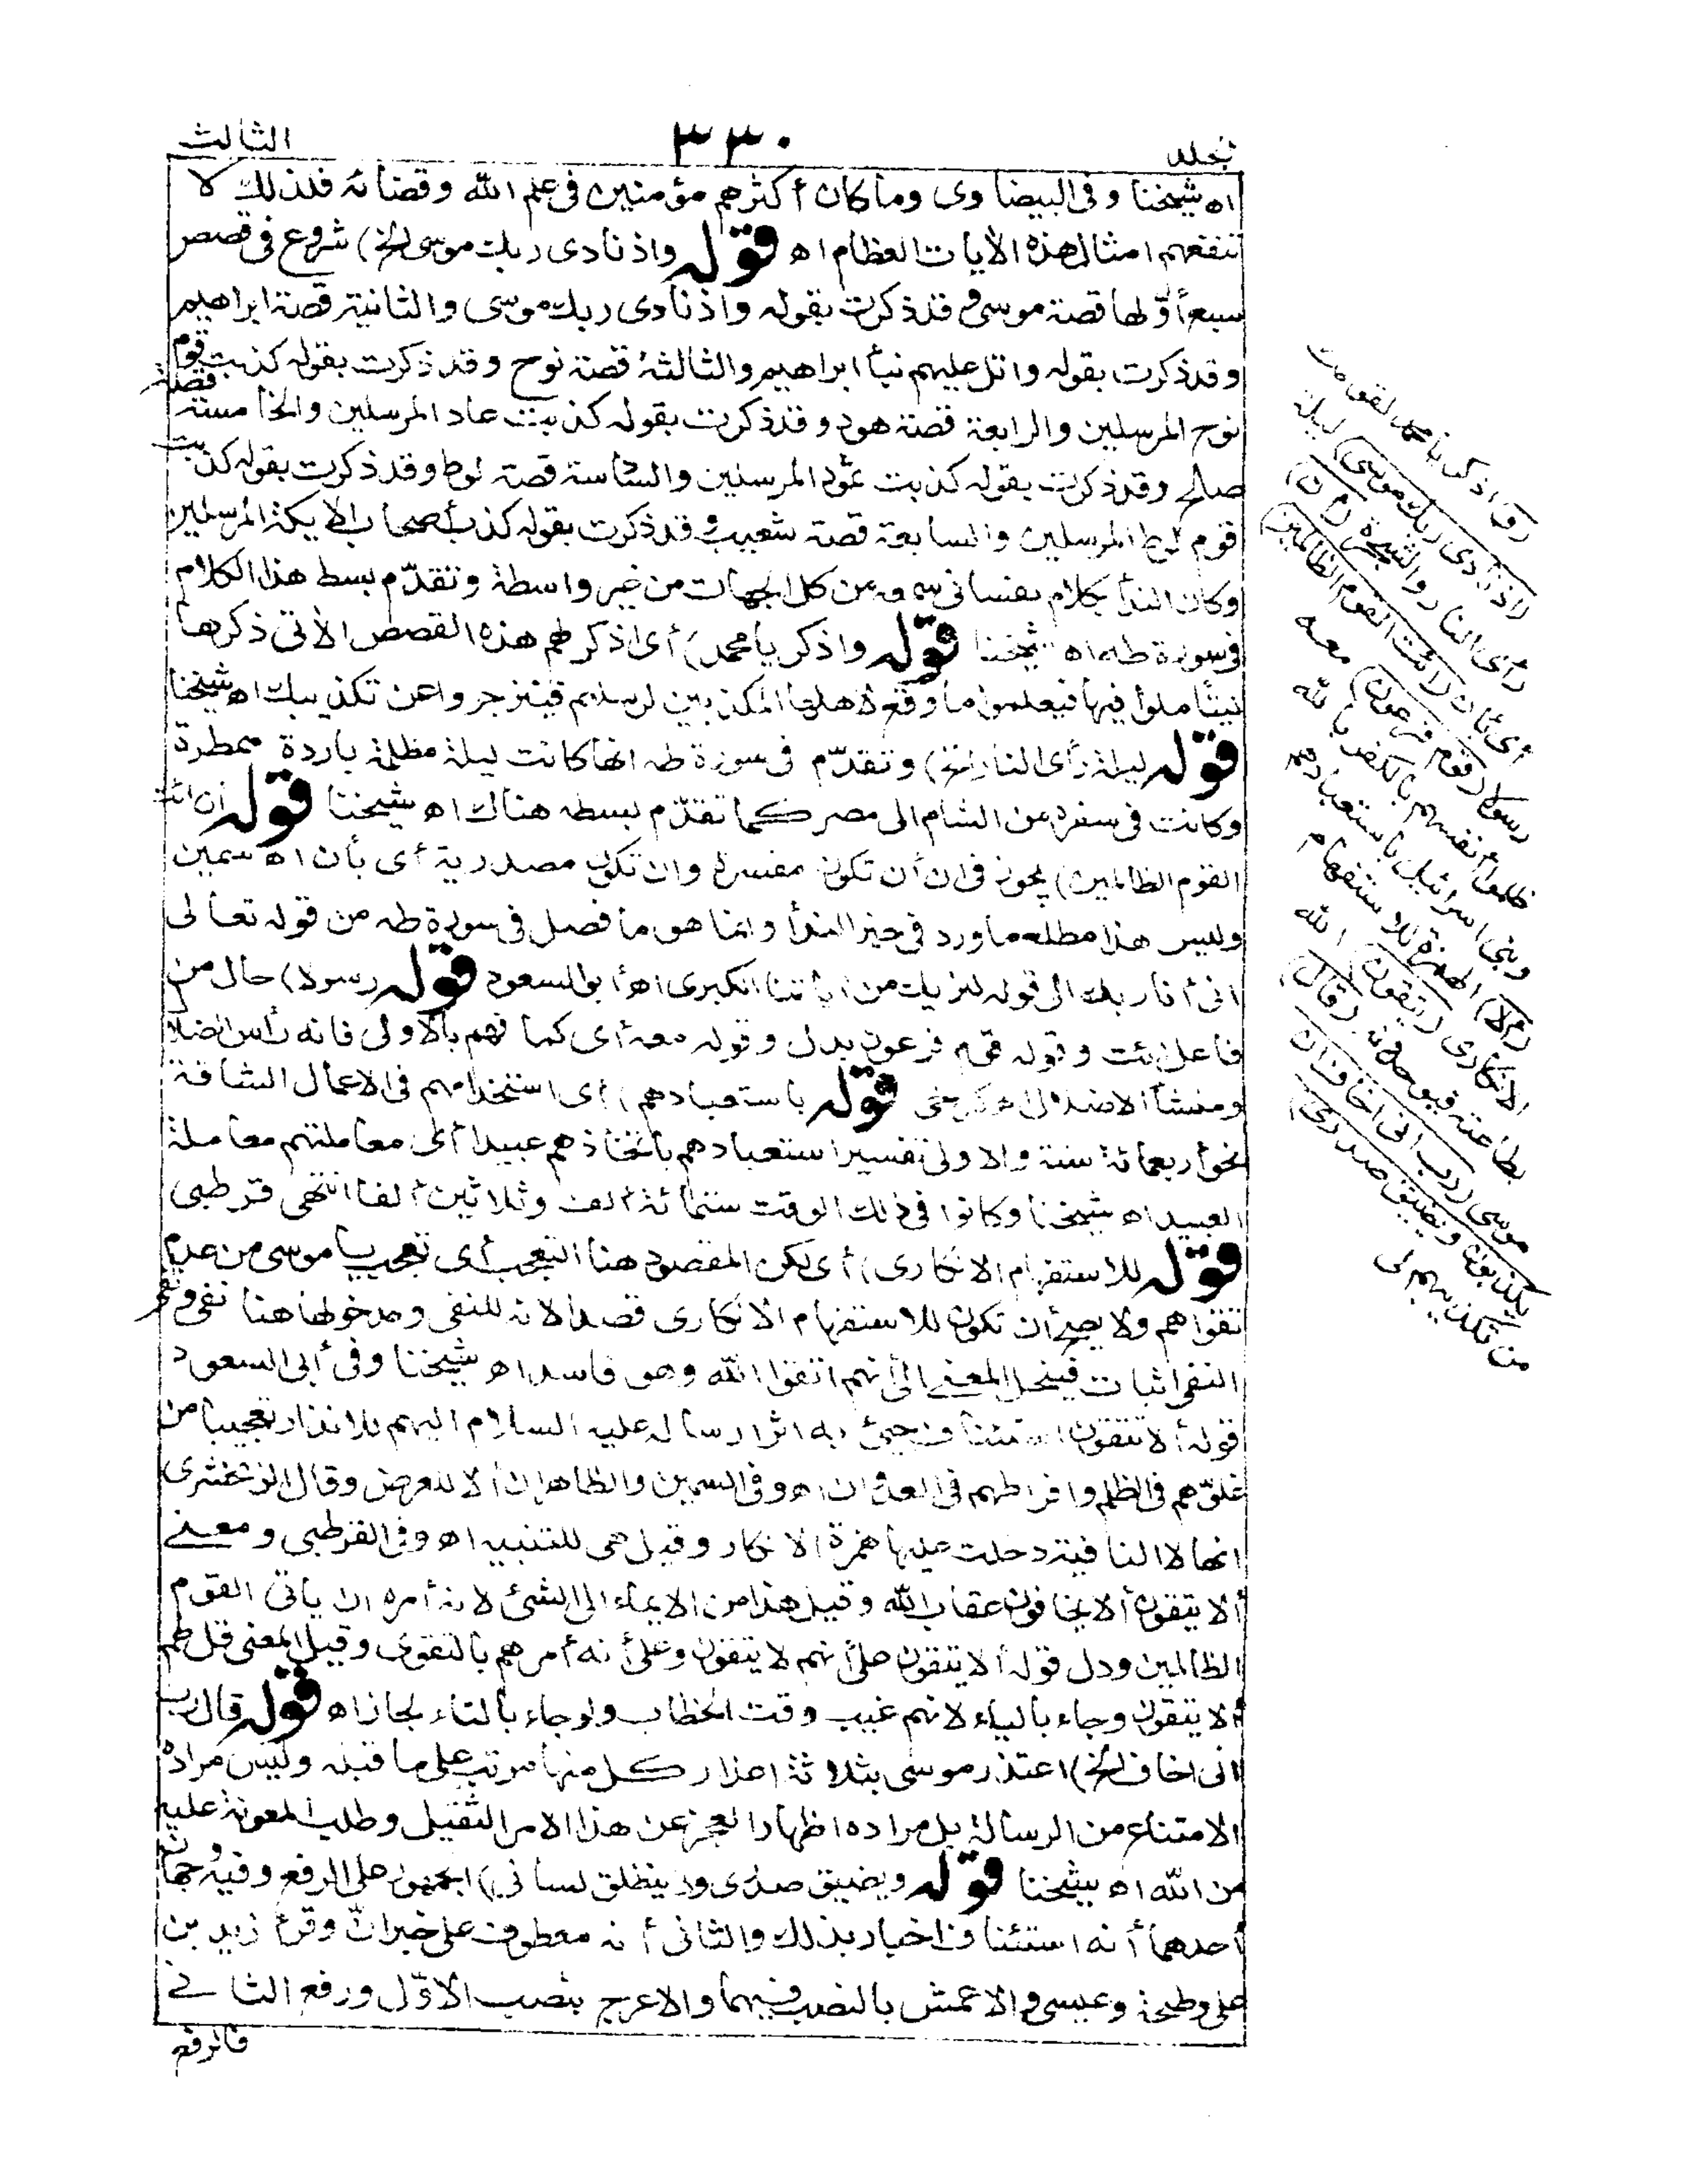 الثالث
٣٣٠
مجلد
اه شيخنا وفى البيضاوى وما كان أكثرهم مؤمنين فى علم الله وقضائه فلذلك لا
تنفعهم امثال هذه الآيات العظام اه قوله واذ نادى ربك موسى الخ) شروع فى قصص
سبع أوّلها قصة موسى وقد ذكرت بقوله واذ نادى ربك موسى والثانية قصة ابراهيم
وقد ذكرت بقوله واتل عليهم نبأ ابراهيم والثالثة قصة نوح وقد ذكرت بقوله كذبت قوم
نوح المرسلين والرابعة قصة هود وقد ذكرت بقوله كذبت عاد المرسلين والخامسة قصة
صالح وقد ذكرت بقوله كذبت ثمود المرسلين والسادسة قصة لوط وقد ذكرت بقوله كذبت
قوم لوط المرسلين والسابعة قصة شعيب وقد ذكرت بقوله كذب أصحاب الأيكة المرسلين
وكان الندأ بكلام نفسانى سمعه من كل الجهات من غير واسطة وتقدّم بسط هذا الكلام
فى سورة طه اه شيخنا قوله واذكر يا محمد) أى اذكر لهم هذه القصص الآتى ذكرها
ليتأملوا فيها فيعلموا ما وقع لاهلها المكذبين لرسلهم فينزجروا عن تكذيبك اه شيخنا
قوله ليلة رأى النار الخ) وتقدّم فى سورة طه انها كانت ليلة مظلمة باردة ممطرة
وكانت فى سفره من الشام الى مصر كما تقدّم بسطه هناك اه شيخنا قوله أن ائت
القوم الظالمين) يجوز فى ان أن تكون مفسرة وان تكون مصدرية أى بأن اه سمين
وليس هذا مطلع ما ورد فى حيز الندأ وانما هو ما فصل فى سورة طه من قوله تعالى
انى أنا ربك الى قوله لنريك من آياتنا الكبرى اه أبو السعود قوله رسولا) حال من
فاعل ائت وقوله قوم فرعون بدل وقوله معه أى كما فهم بالاولى فانه رأس الضلال
ومنشأ الاضلال اه كرخى قوله باستعبادهم) أى استخدامهم فى الاعمال الشاقة
نحو أربعمائة سنة والاولى تفسير استعبادهم باتخاذهم عبيدا أى معاملتهم معاملة
العبيد اه شيخنا وكانوا فى ذلك الوقت ستمائة ألف وثلاثين ألفا انتهى قرطبى
قوله للاستفهام الانكارى) أى لكن المقصود هنا التعجب أى تعجيب موسى من عدم
تقواهم ولا يصح أن تكون للاستفهام الانكارى قصدا لانه للنفى ومدخولها هنا نفى ونفى
النفى اثبات فينحل المعنى الى أنهم اتقوا الله وهو فاسد اه شيخنا وفى أبى السعود
قوله ألا تتقون استئناف جئ به اثر ارساله عليه السلام اليهم للانذار تعجيبا من
غلوّهم فى الظلم وافراطهم فى العدوان اه وفى السمين والظاهر ان ألا للعرض وقال الزمخشرى
انها لا النافية دخلت عليها همزة الانكار وقيل هى للتنبيه اه وفى القرطبى ومعنى
ألا يتقون ألا يخافون عقاب الله وقيل هذا من الايماء الى الشئ لانه أمره ان يأتى القوم
الظالمين ودل قوله ألا يتقون على أنهم لا يتقون وعلى أنه أمرهم بالتقوى وقيل المعنى قل لهم
ألا يتقون وجاء بالياء لانهم غيب وقت الخطاب ولو جاء بالتاء لجاز اه قوله قال رب
انى اخاف الخ) اعتذر موسى بثلاثة اعذار كل منها مرتب على ما قبله وليس مراده
الامتناع من الرسالة بل مراده اظهار العجز عن هذا الامر الثقيل وطلب المعونة عليه
من الله اه شيخنا قوله ويضيق صدرى ولا ينطلق لسانى) الجمهور على الرفع وفيه وجهان
أحدهما أنه استئناف اخبار بذلك والثانى أنه معطوف على خبر ان وقرأ زيد بن
على وطلحة وعيسى والاعمش بالنصب فيهما والاعرج بنصب الاوّل ورفع الثانى
فالرفع
(و) اذكر يا محمد لقومك
(اذ نادى ربك موسى) ليلة
رأى النار والشجرة (ان)
أى بأن (ائت القوم الظالمين)
رسولا (قوم فرعون) معه
ظلموا أنفسهم بالكفر بالله
وبنى اسرائيل باستعبادهم
(ألا) الهمزة للاستفهام
الانكارى (يتقون) الله
بطاعته فيوحدونه (قال)
موسى (رب انى اخاف ان
يكذبون ويضيق صدرى)
من تكذيبهم لى